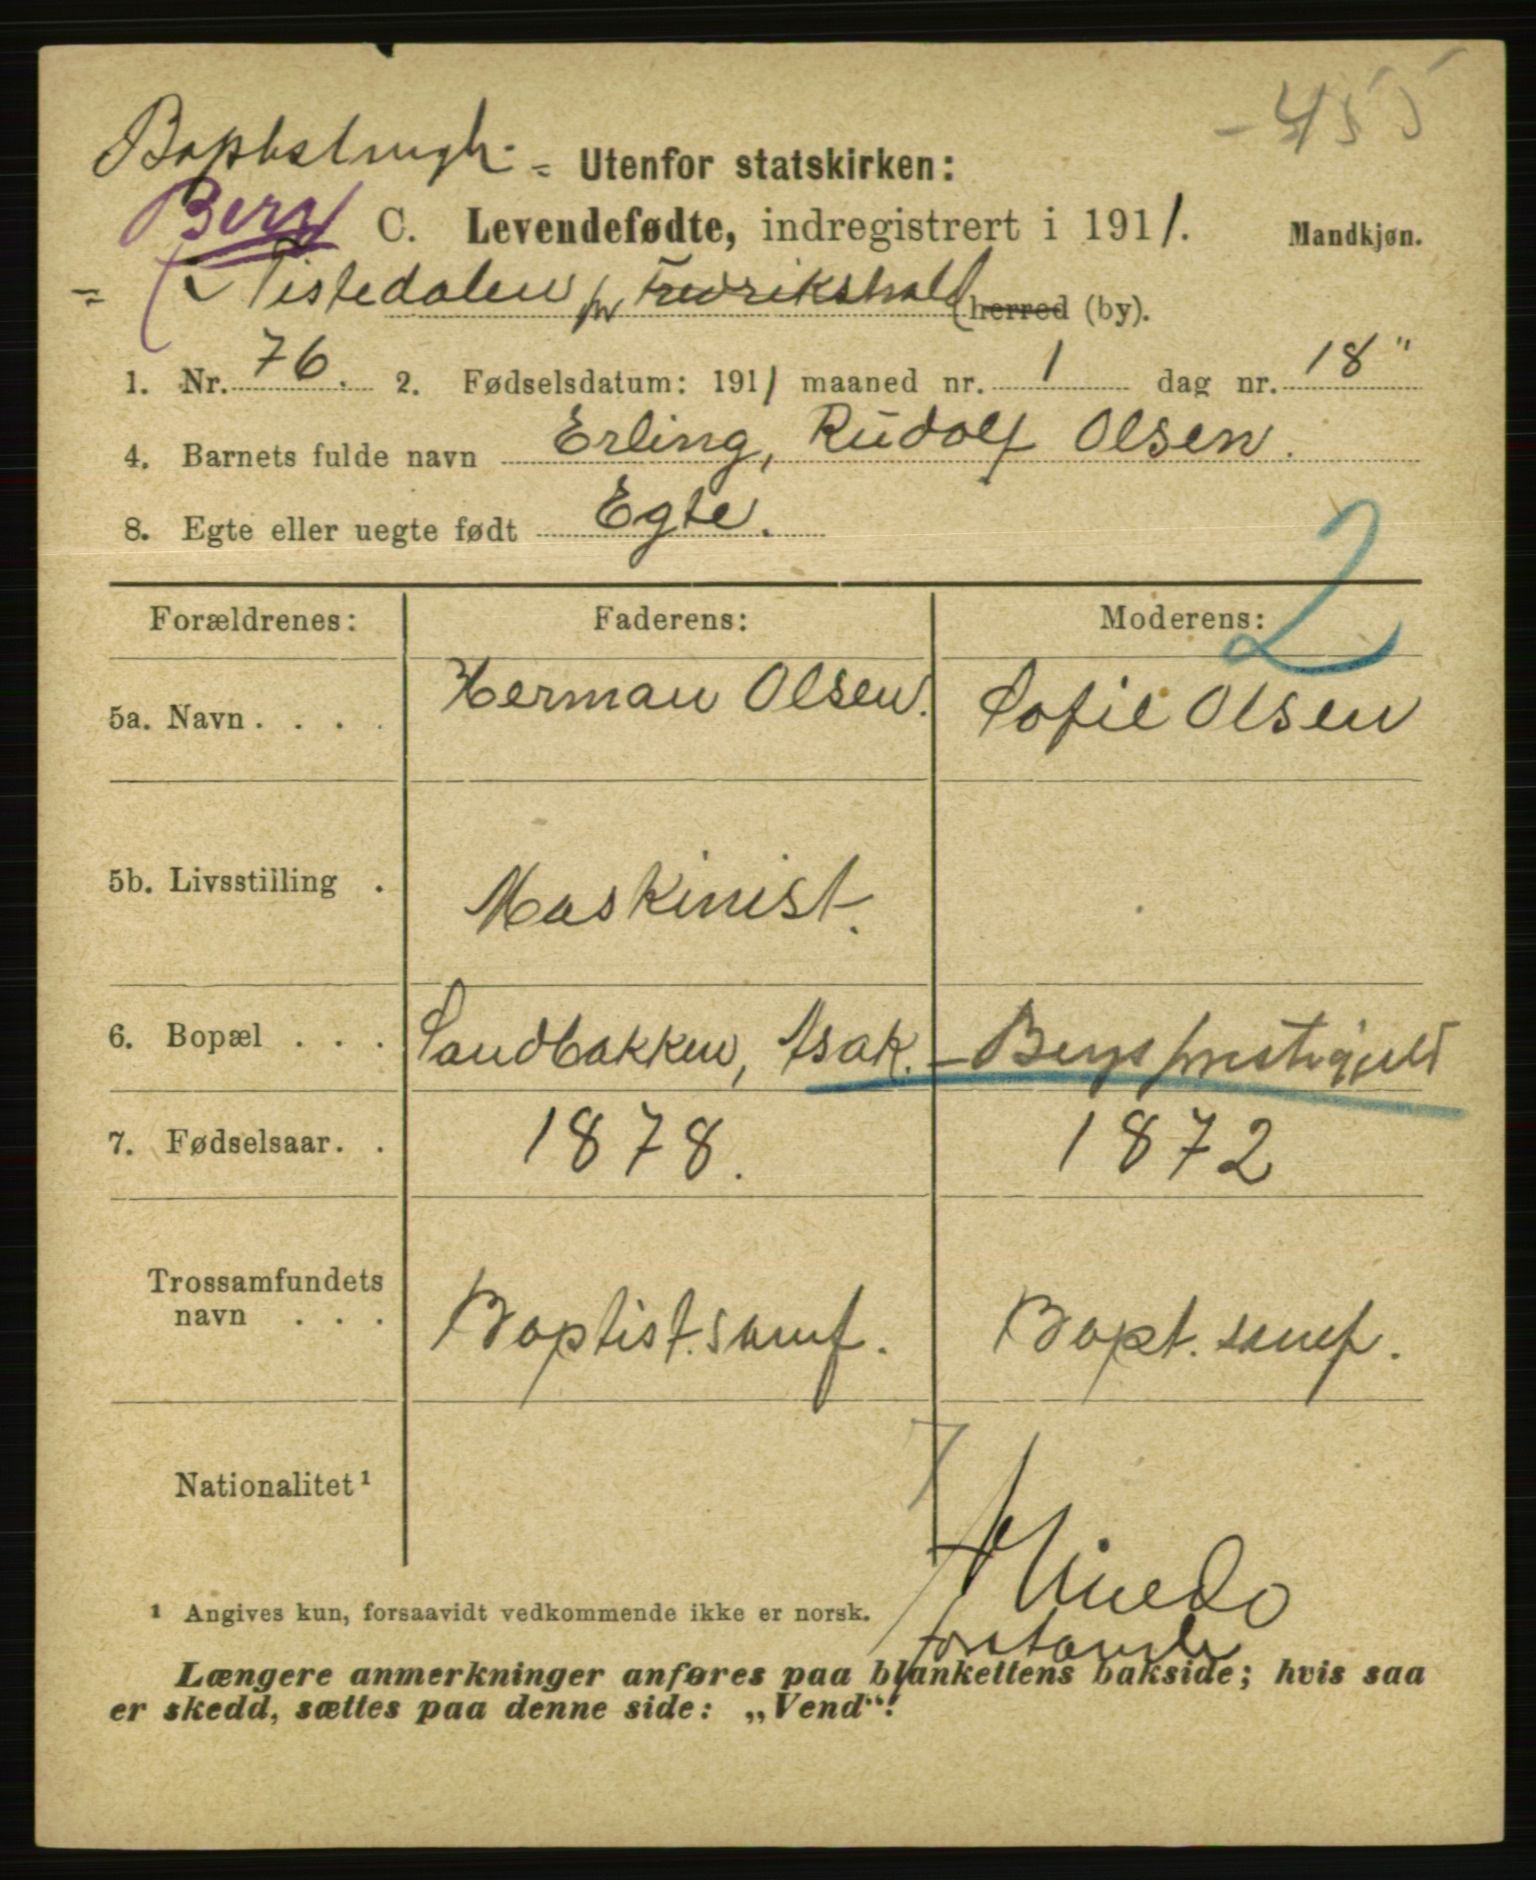 - 455
= Utenfor statskirken:
Berg C. Levendefødte, indregistrert i 1911. Mandkjøn.
= (Tistedalen pr Fredrikshald) herred (by).
1. Nr. 76. 2. Fødselsdatum: 1911 maaned nr. 1 dag nr. 18"
4. Barnets fulde navn Erling, Rudolf Olsen.
8. Egte eller uegte født Egte.
2
Forældrenes: Faderens: Moderens:
5a. Navn . . . . Herman Olsen. Sofie Olsen
5b. Livsstilling . Maskinist.
6. Bopæl . . . Sandbakken, Isak. - Bergs prestegjeld
7. Fødselsaar. . 1878. 1872
Trossamfundets
navn . . . Baptist.samf. Bapt. samf.
7
Nationalitet¹
¹ Angives kun, forsaavidt vedkommende ikke er norsk.
forstander
Længere anmerkninger anføres paa blankettens bakside; hvis saa
er skedd, sættes paa denne side: „Vend“!